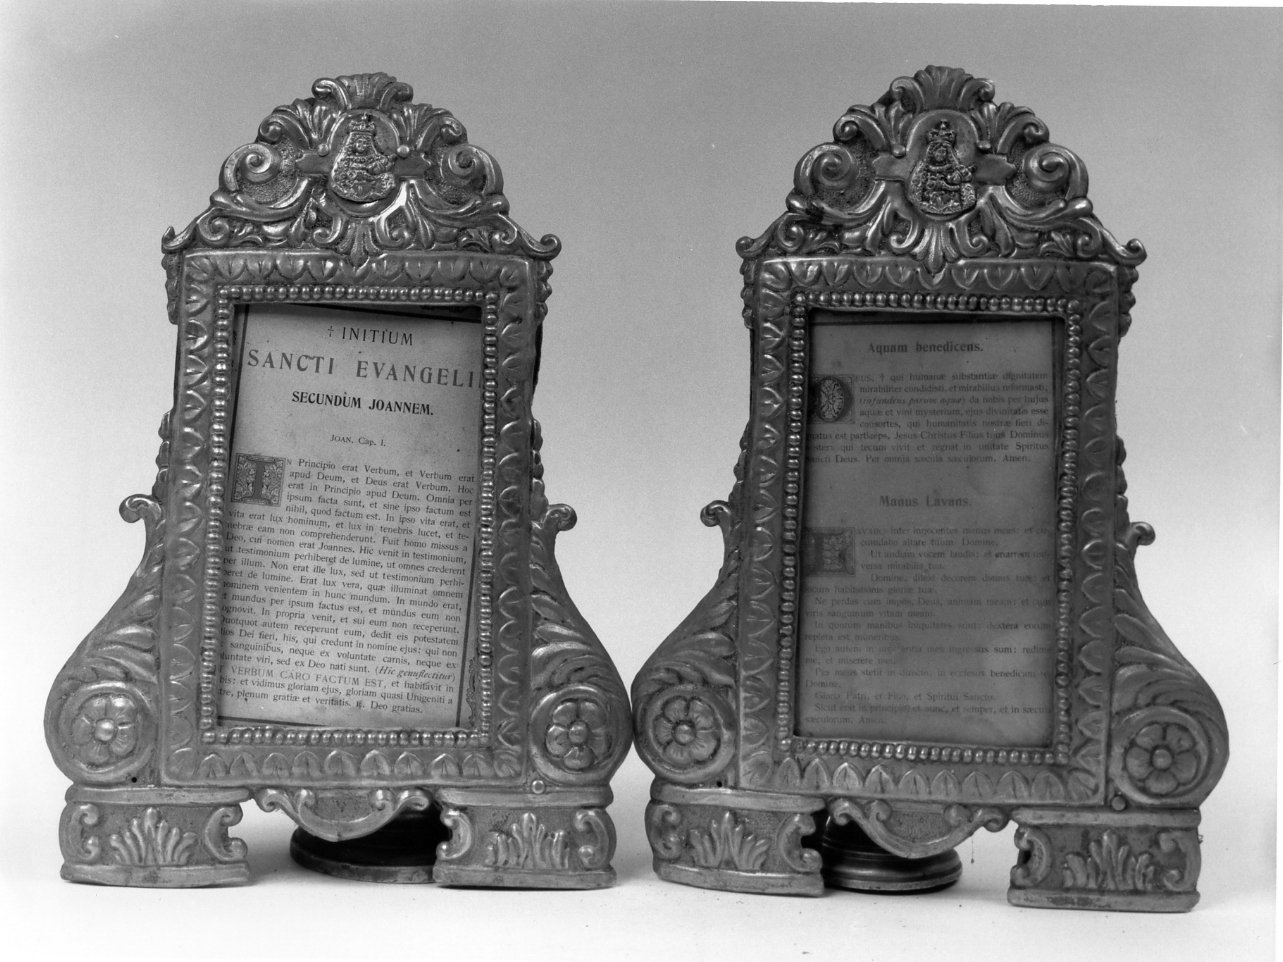 † INITIUM
SANCTI EVANGELII
SECUNDUM JOANNEM.
JOAN. Cap. I.
IN Principio erat Verbum, et Verbum erat
apud Deum, et Deus erat Verbum. Hoc
erat in Principio apud Deum. Omnia per
ipsum facta sunt, et sine ipso factum est
nihil, quod factum est. In ipso vita erat, et
vita erat lux hominum, et lux in tenebris lucet, et te-
nebræ eam non comprehenderunt. Fuit homo missus a
Deo, cui nomen erat Joannes. Hic venit in testimonium,
ut testimonium perhiberet de lumine, ut omnes crederent
per illum. Non erat ille lux, sed ut testimonium perhi-
beret de lumine. Erat lux vera, quæ illuminat omnem
hominem venientem in hunc mundum. In mundo erat,
et mundus per ipsum factus est, et mundus eum non
cognovit. In propria venit, et sui eum non receperunt.
Quotquot autem receperunt eum, dedit eis potestatem
filios Dei fieri, his, qui credunt in nomine ejus: qui non
ex sanguinibus, neque ex voluntate carnis, neque ex
voluntate viri, sed ex Deo nati sunt. (Hic genuflectitur)
ET VERBUM CARO FACTUM EST, et habitavit in
nobis: et vidimus gloriam ejus, gloriam quasi Unigeniti a
Patre, plenum gratiæ et veritatis. ℟. Deo gratias.
Aquam benedicens.
DEUS, † qui humanæ substantiæ dignitatem
mirabiliter condidisti, et mirabilius reformasti,
(infundens parum aquæ) da nobis per hujus
aquæ et vini mysterium, ejus divinitatis esse
consortes, qui humanitatis nostræ fieri di-
gnatus est particeps, Jesus Christus Filius tuus Dominus
noster: qui tecum vivit et regnat in unitate Spiritus
Sancti Deus. Per omnia sæcula sæculorum. Amen.
Manus Lavans.
LAVABO inter innocentes manus meas: et cir-
cumdabo altare tuum Domine,
Ut audiam vocem laudis: et enarrem uni-
versa mirabilia tua.
Domine, dilexi decorem domus tuæ: et
locum habitationis gloriæ tuæ.
Ne perdas cum impiis, Deus, animam meam: et cum
viris sanguinum vitam meam.
In quorum manibus iniquitates sunt: dextera eorum
repleta est muneribus.
Ego autem in innocentia mea ingressus sum: redime
me, et miserere mei.
Pes meus stetit in directo: in ecclesiis benedicam te
Domine.
Gloria Patri, et Filio, et Spiritui Sancto.
Sicut erat in principio, et nunc, et semper, et in sæcula
sæculorum. Amen.